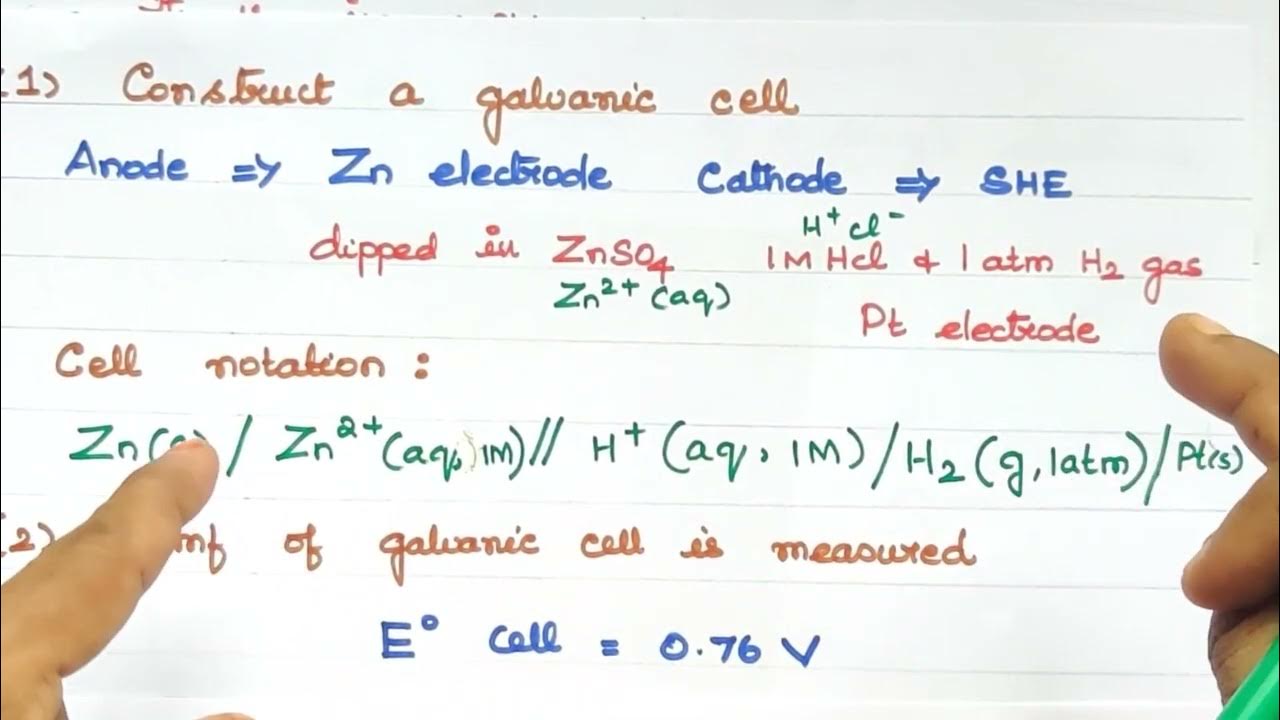 (1) Construct a galvanic cell
Anode ⇒ Zn electrode Cathode ⇒ SHE
H⁺ Cl⁻
dipped in ZnSO₄ 1M HCl & 1 atm H₂ gas
Zn²⁺ (aq)
Pt electrode
Cell notation :
Zn( / Zn²⁺(aq, 1M) // H⁺ (aq, 1M) / H₂ (g, 1atm) / Pt(s)
(2) mf of galvanic cell is measured
E° cell = 0.76 V